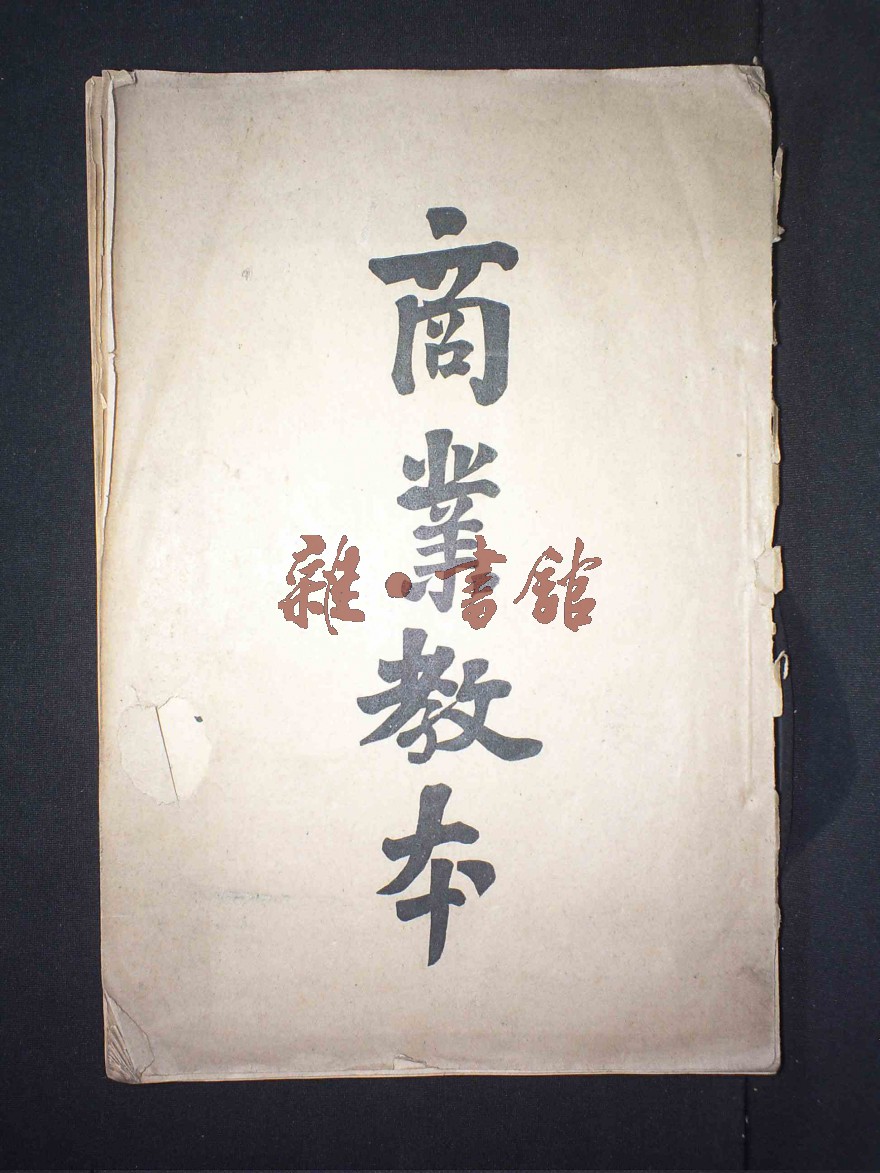 商業教本
雜·書館